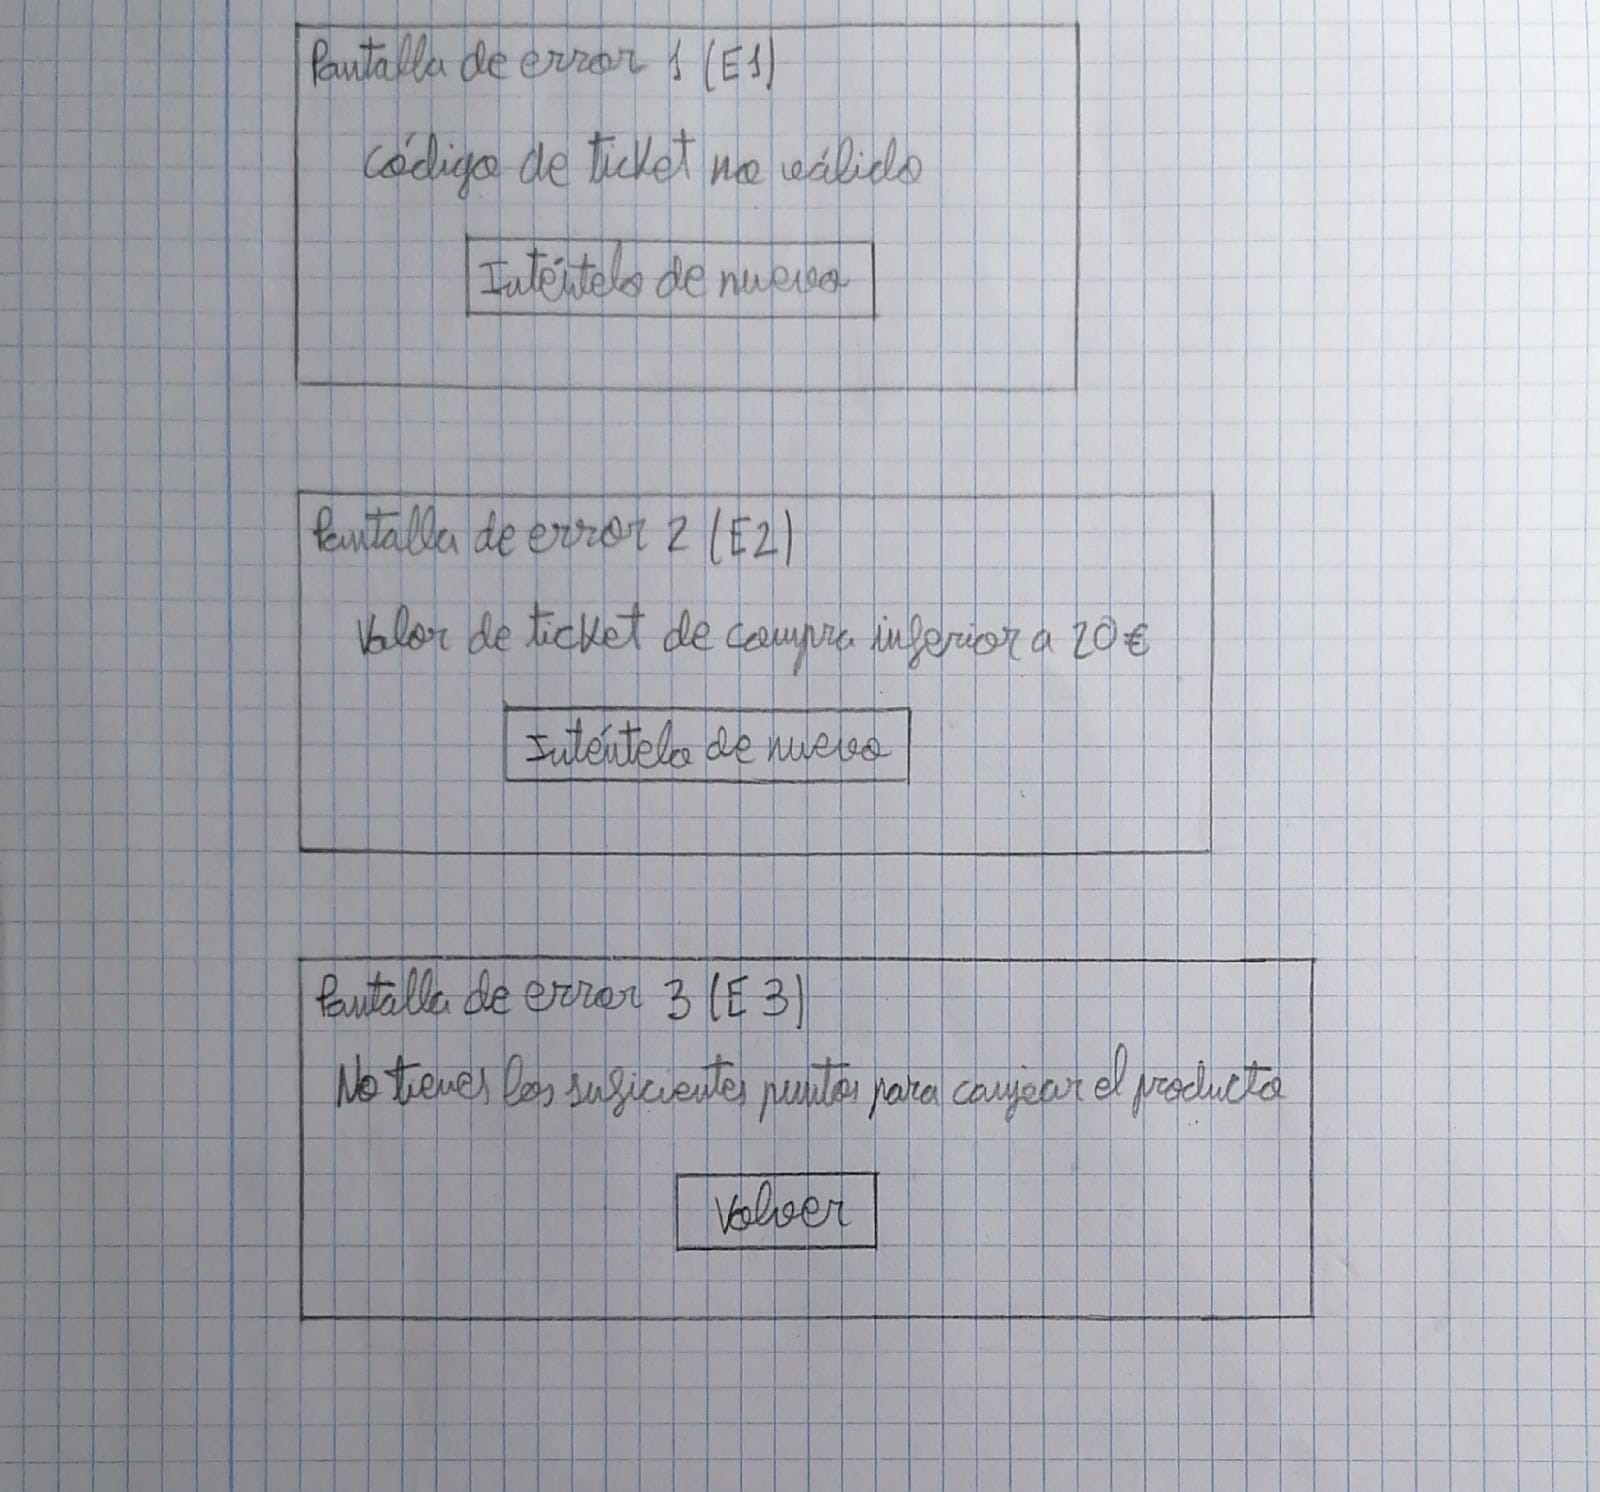 Pantalla de error 1 (E1)
Código de ticket no válido
Inténtelo de nuevo
Pantalla de error 2 (E2)
Valor de ticket de compra inferior a 20€
Inténtelo de nuevo
Pantalla de error 3 (E3)
No tienes los suficientes puntos para canjear el producto
Volver